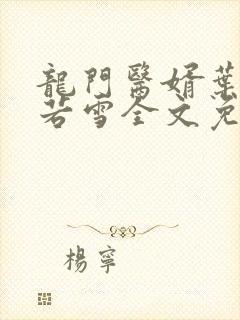 龍門醫婿葉
若雪全文免
楊寧